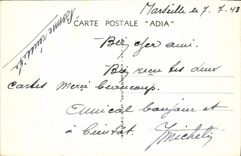 Marseille le 7. 7. 43
CARTE POSTALE "ADIA"
Bien cher ami.
Bien reçu tes deux
cartes Merci beaucoup.
Amical bonjour et
à bientôt.